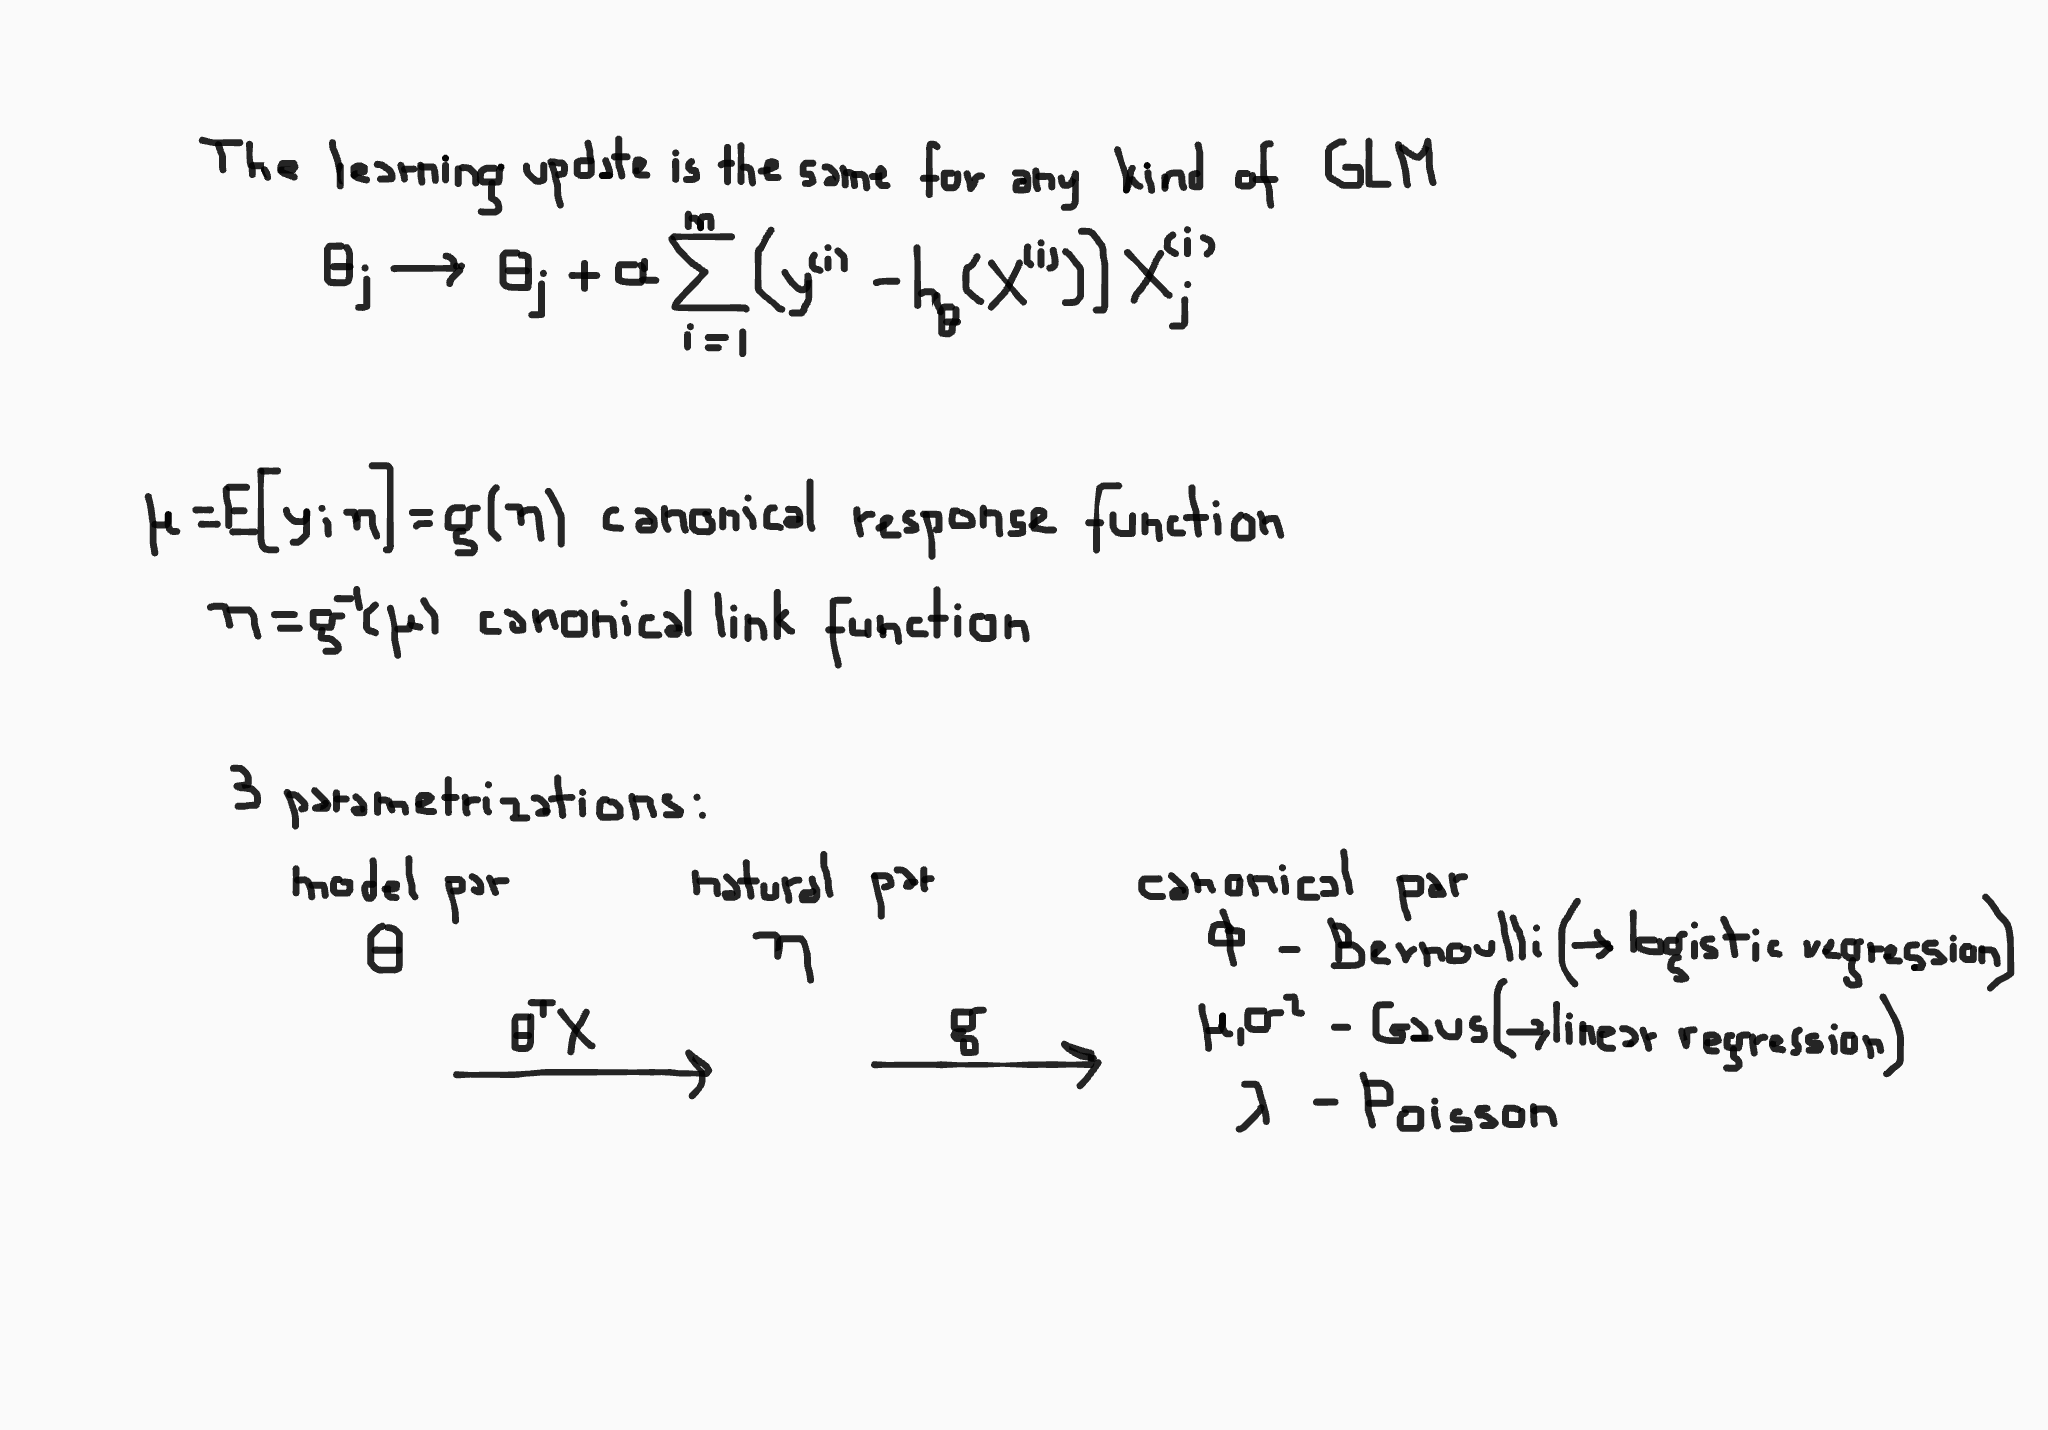 The learning update is the same for any kind of GLM
θ_j → θ_j + α ∑_{i=1}^{m} (y^{(i)} - h_θ(x^{(i)})) x_j^{(i)}
μ = E[y;η] = g(η) canonical response function
η = g^{-1}(μ) canonical link function
3 parametrizations:
model par natural par canonical par
θ η ϕ - Bernoulli (→ logistic regression)
θ^T x g μ, σ² - Gaus (→ linear regression)
λ - Poisson